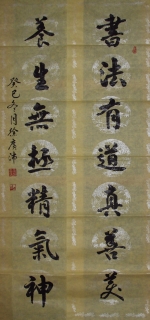 書法有道真善美
養生無極精氣神
癸巳冬月徐孝沛